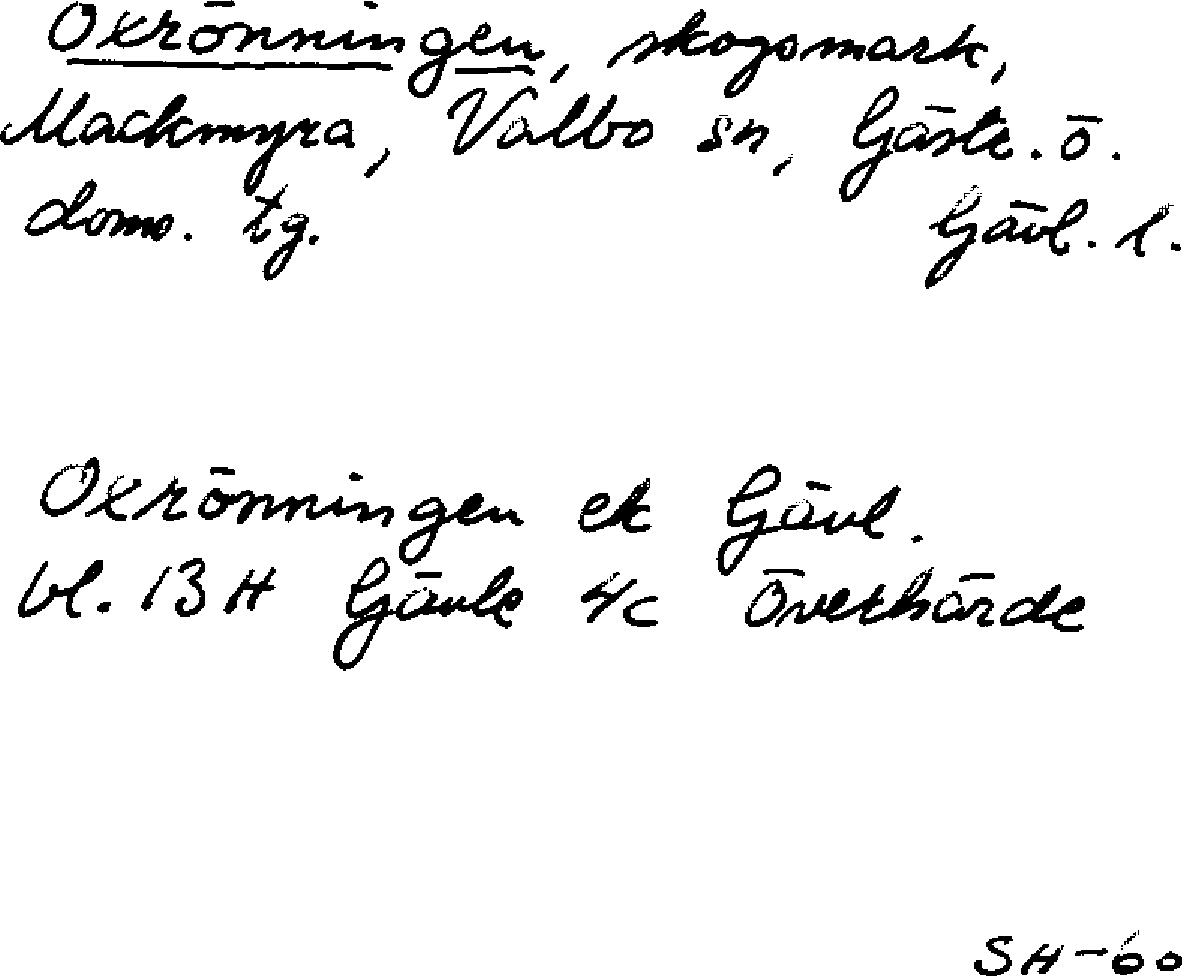 Oxrönningen, skogsmark,
Mackmyra, Valbo sn, Gästr. ö.
doms. tg. Gävl. l.
Oxrönningen ek Gävl.
bl. 13 H Gävle 4c Överhärde
SH-60